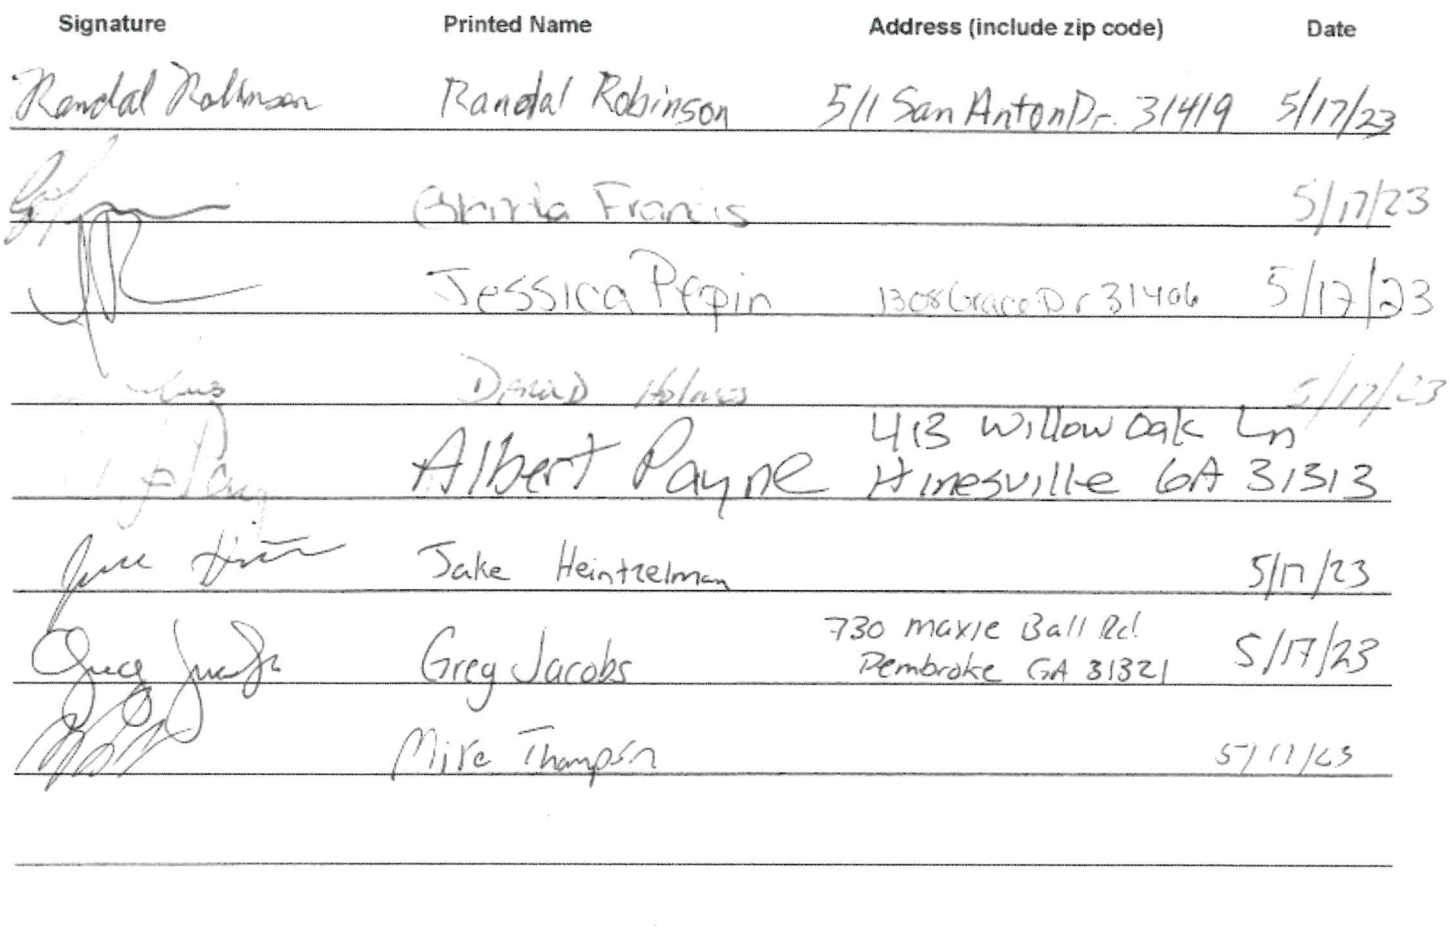 Signature Printed Name Address (include zip code) Date
Randal Robinson Randal Robinson 511 San Anton Dr. 31419 5/17/23
Francis 5/17/23
Jessica Pepin 1308 Grace Dr 31406 5/17/23
David Holmes 5/17/23
413 Willow Oak Ln
Albert Payne Hinesville GA 31313
Jake Heintzelman 5/17/23
730 Maxie Ball Rd.
Greg Jacobs Greg Jacobs Pembroke GA 31321 5/17/23
Mike Thompson 5/17/23